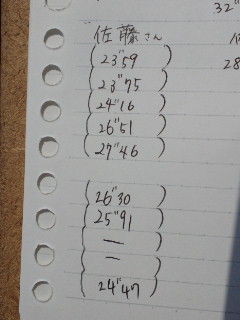 32"
佐藤さん
(23"59)
28
(23"75)
(24"16)
(26"51)
(27"46)
(26"30)
(25"91)
( — )
( — )
(24"47)